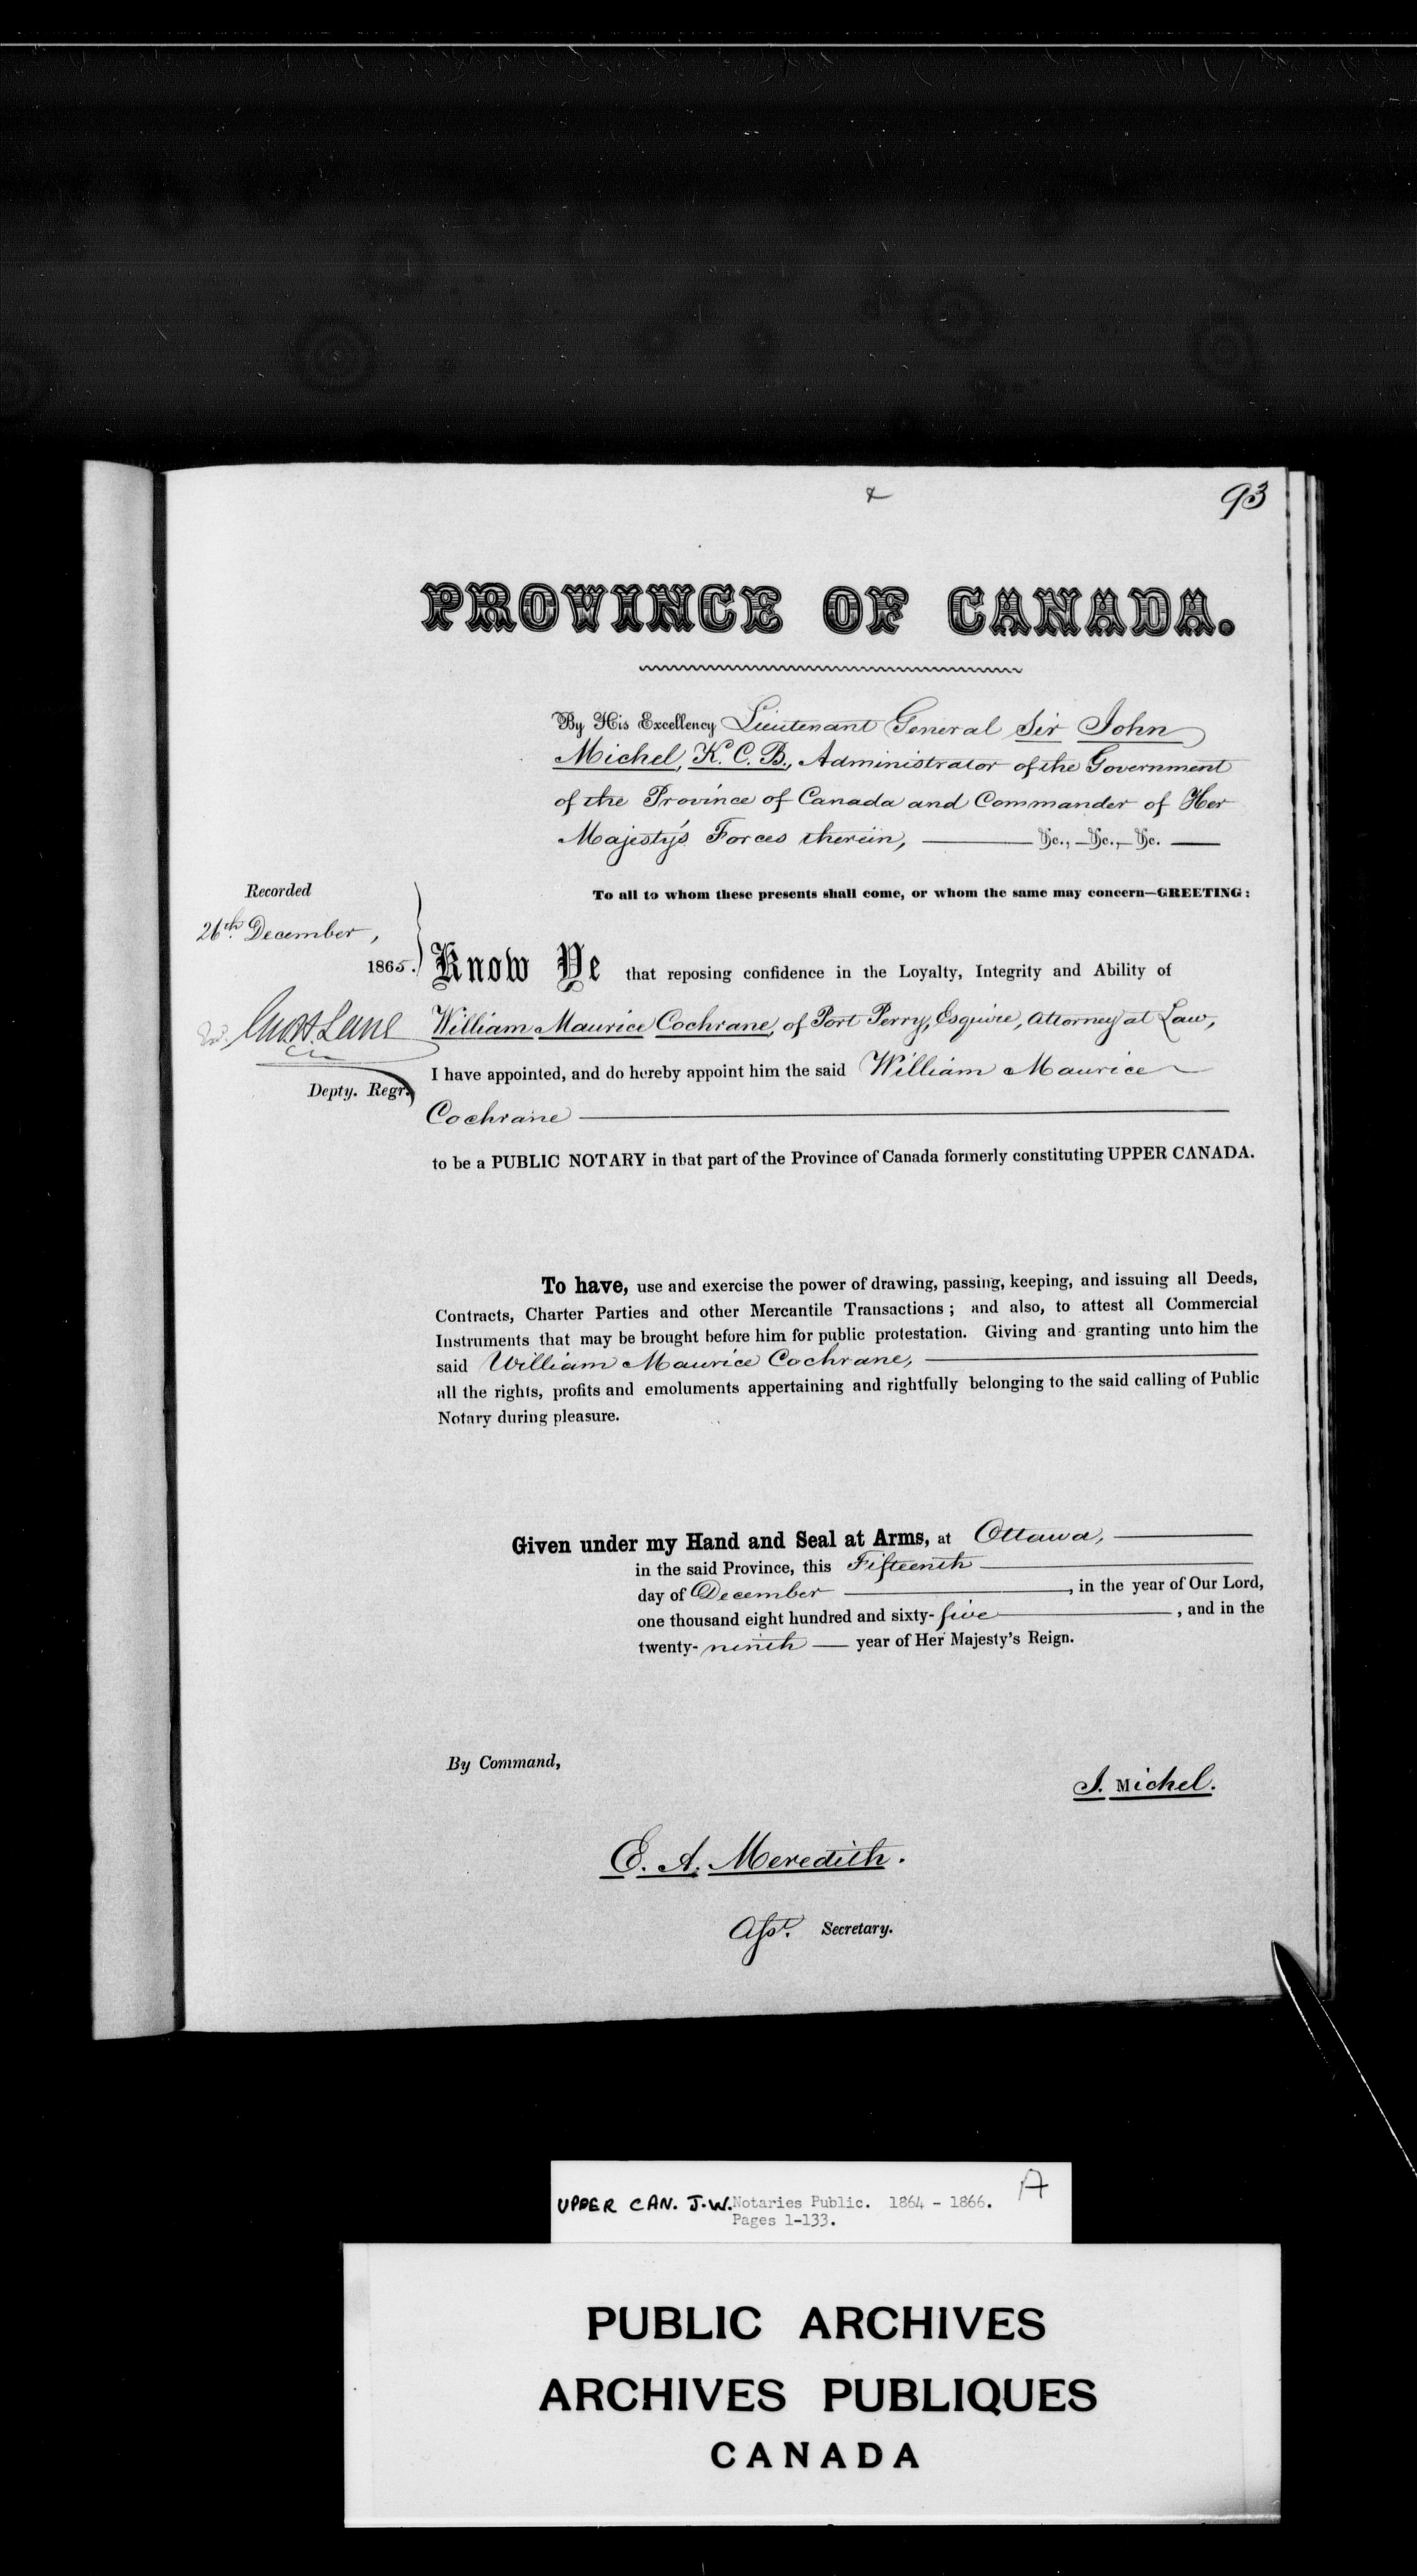 93
PROVINCE OF CANADA.
By His Excellency Lieutenant General Sir John
Michel, K. C. B., Administrator of the Government
of the Province of Canada and Commander of Her
Majesty's Forces therein, &c., &c., &c.
To all to whom these presents shall come, or whom the same may concern—GREETING:
Recorded
26th December,
1865.
Lane
Depty. Regr.
Know Ye that reposing confidence in the Loyalty, Integrity and Ability of
William Maurice Cochrane, of Port Perry, Esquire, Attorney at Law,
I have appointed, and do hereby appoint him the said William Maurice
Cochrane
to be a PUBLIC NOTARY in that part of the Province of Canada formerly constituting UPPER CANADA.
To have, use and exercise the power of drawing, passing, keeping, and issuing all Deeds,
Contracts, Charter Parties and other Mercantile Transactions; and also, to attest all Commercial
Instruments that may be brought before him for public protestation. Giving and granting unto him the
said William Maurice Cochrane,
all the rights, profits and emoluments appertaining and rightfully belonging to the said calling of Public
Notary during pleasure.
Given under my Hand and Seal at Arms, at Ottawa,
in the said Province, this Fifteenth
day of December, in the year of Our Lord,
one thousand eight hundred and sixty-five, and in the
twenty-ninth year of Her Majesty's Reign.
By Command,
J. Michel.
E. A. Meredith.
Asst. Secretary.
A
UPPER CAN. J.W. Notaries Public. 1864 - 1866.
Pages 1-133.
PUBLIC ARCHIVES
ARCHIVES PUBLIQUES
CANADA